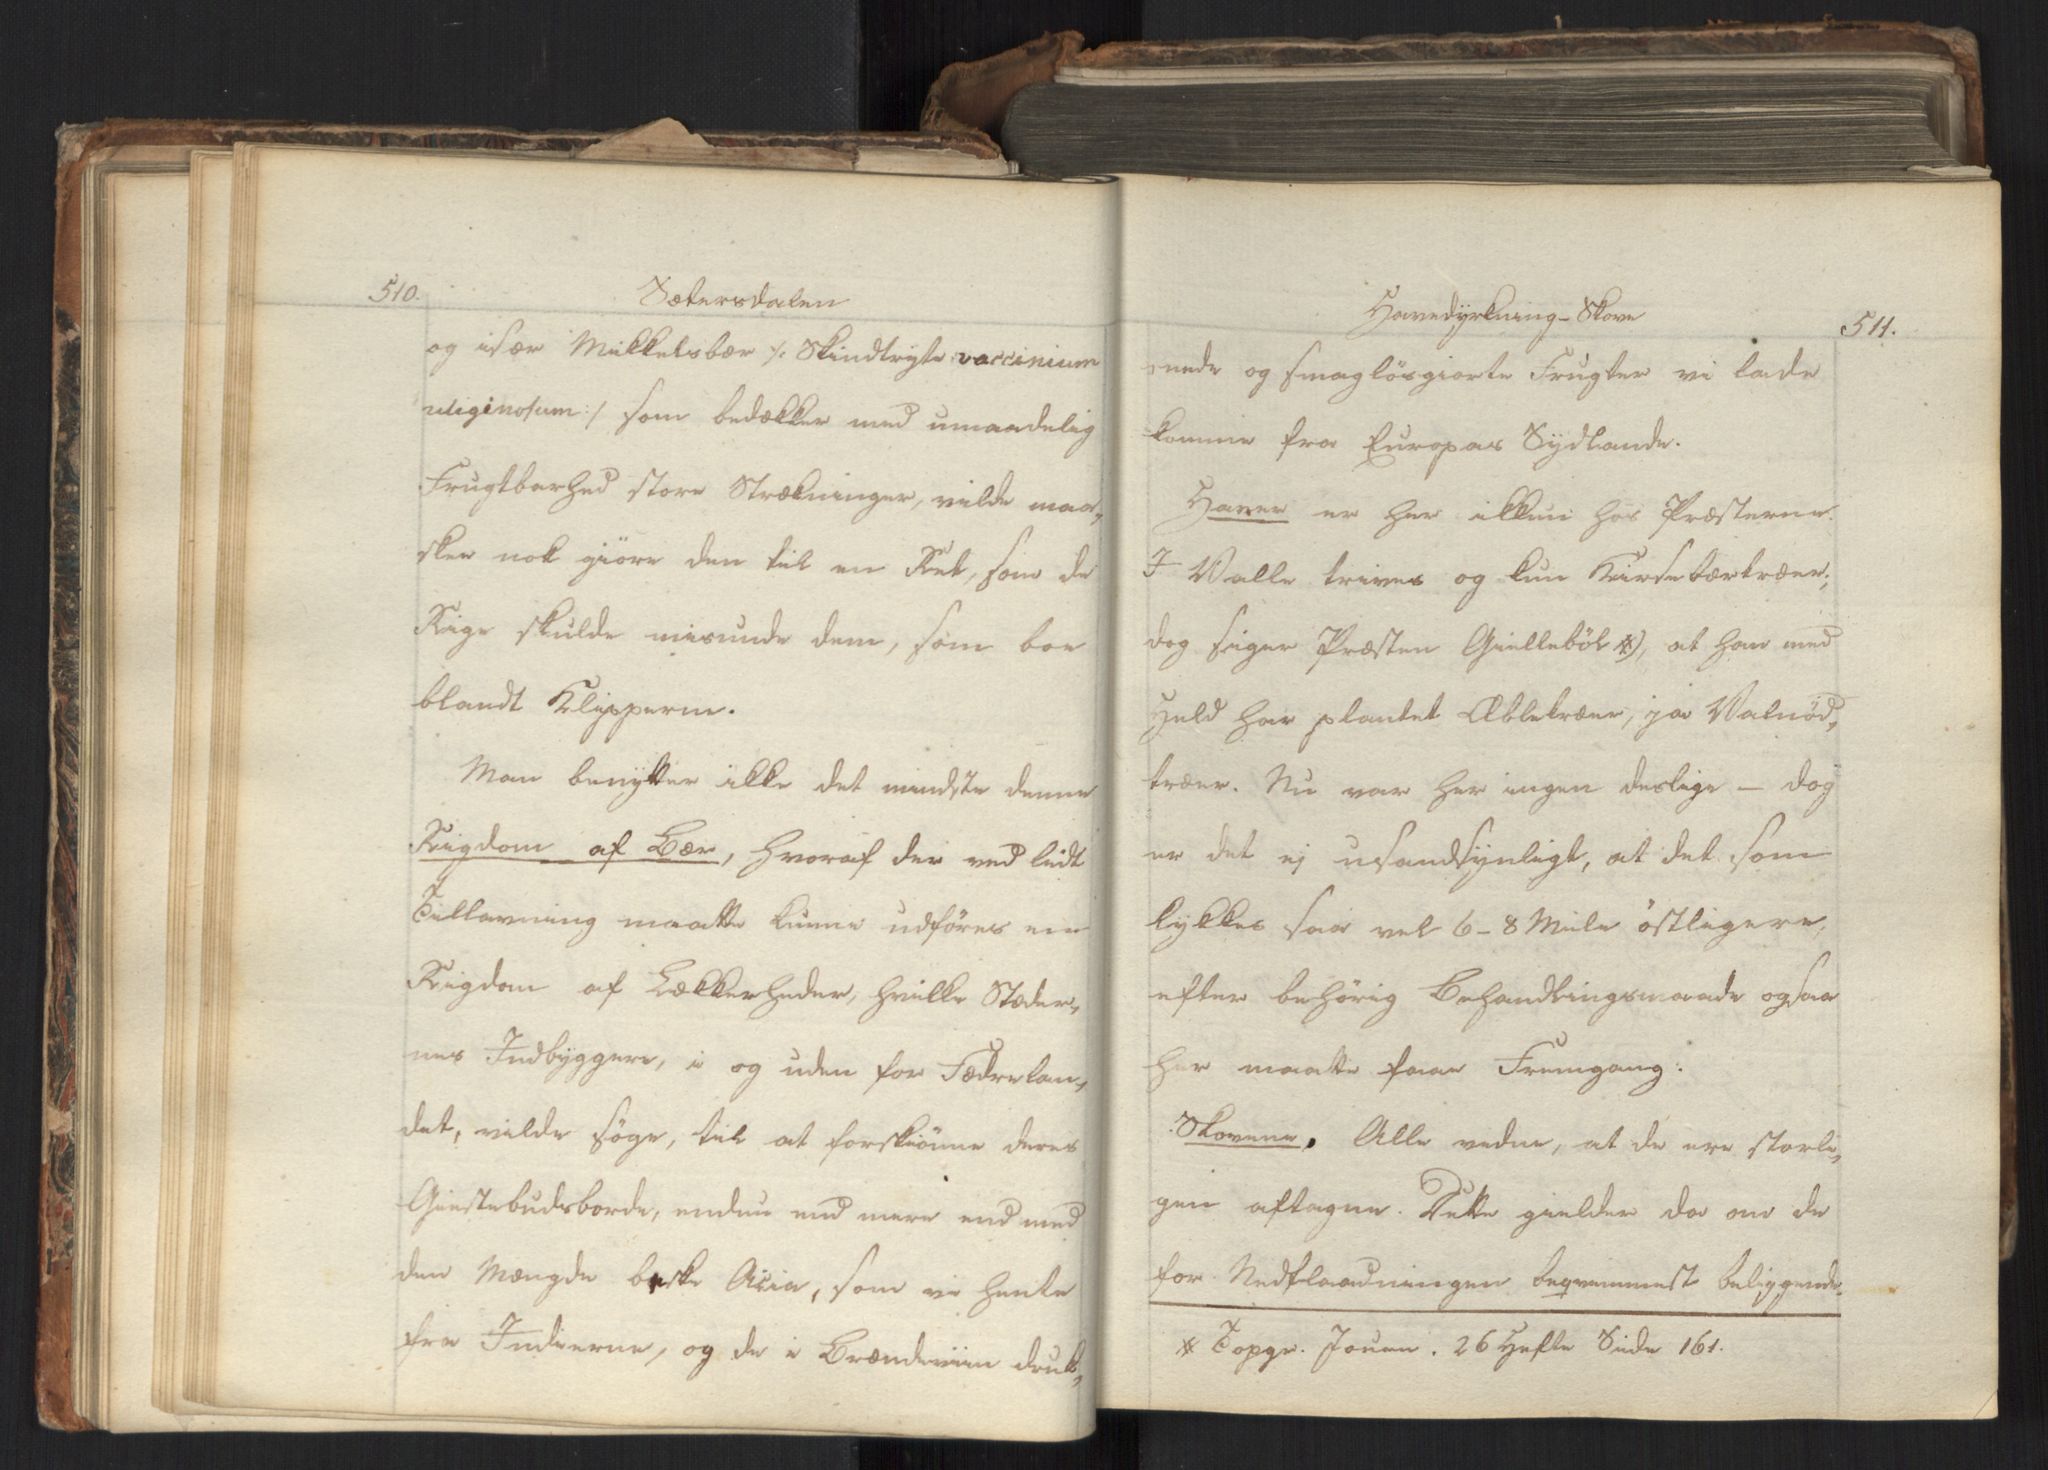 510.
Sætersdalen
og især Mikkelsbær /: Skindtryte vaccinium
uliginosum :/ som bedækker med umaadelig
Frugtbarhed store Strækninger, vilde maa„
skee nok giöre den til en Ret, som de
Rige skulde misunde dem, som boe
blandt Klipperne.
Man benytter ikke det mindste denne
Rigdom af Bær, hvoraf der ved lidt
Tillavning maatte kunne udföres en
Rigdom af Lækkerheder, hvilke Stæder„
nes Indbyggere, i og uden for Fædrelan„
det, vilde söge, til at forskiönne deres
Giestebudsborde, endnu end mere end med
den Mængde beske Acia, som vi hente
fra Indierne, og de i Brændeviin druk„
Havedyrkning - Skove
511.
nede og smaglösgiorte Frugter vi lade
komme fra Europas Sydlande.
Haver er her ikkun hos Præsterne.
I Valle trives og kun Kirsebærtræer;
dog siger Præsten Gielleböl *), at han med
Held har plantet Æbletræer, ja Valnöd„
træer. Nu var her ingen deslige — dog
er det ej usandsynligt, at det som
lykkes saa vel 6 - 8 Mile östligere,
efter behörig Behandlingsmaade ogsaa
her maatte faae Fremgang.
Skovene. Alle vedne, at de ere storli„
gen aftagne. Dette gielder da om de
for Nedflaadningen beqvemmest beliggende.
* Topgr. Journ. 26 Hefte Side 161.